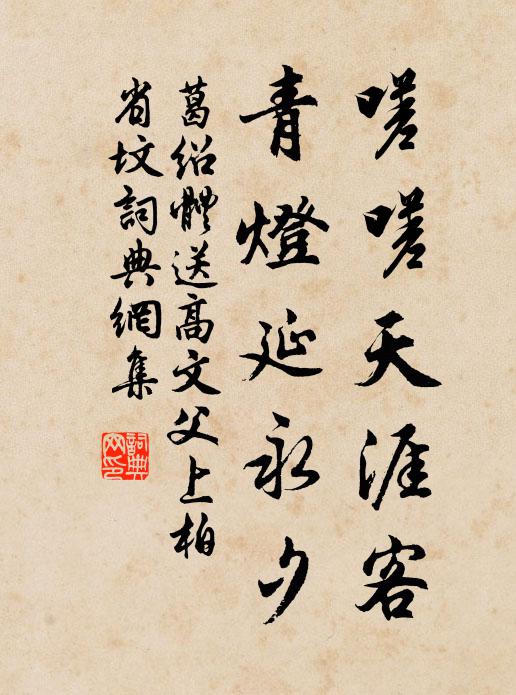 嗟嗟天涯客
青燈延永夕
葛绍體送高文父上柏
省墳詞典網集
詞典
网印